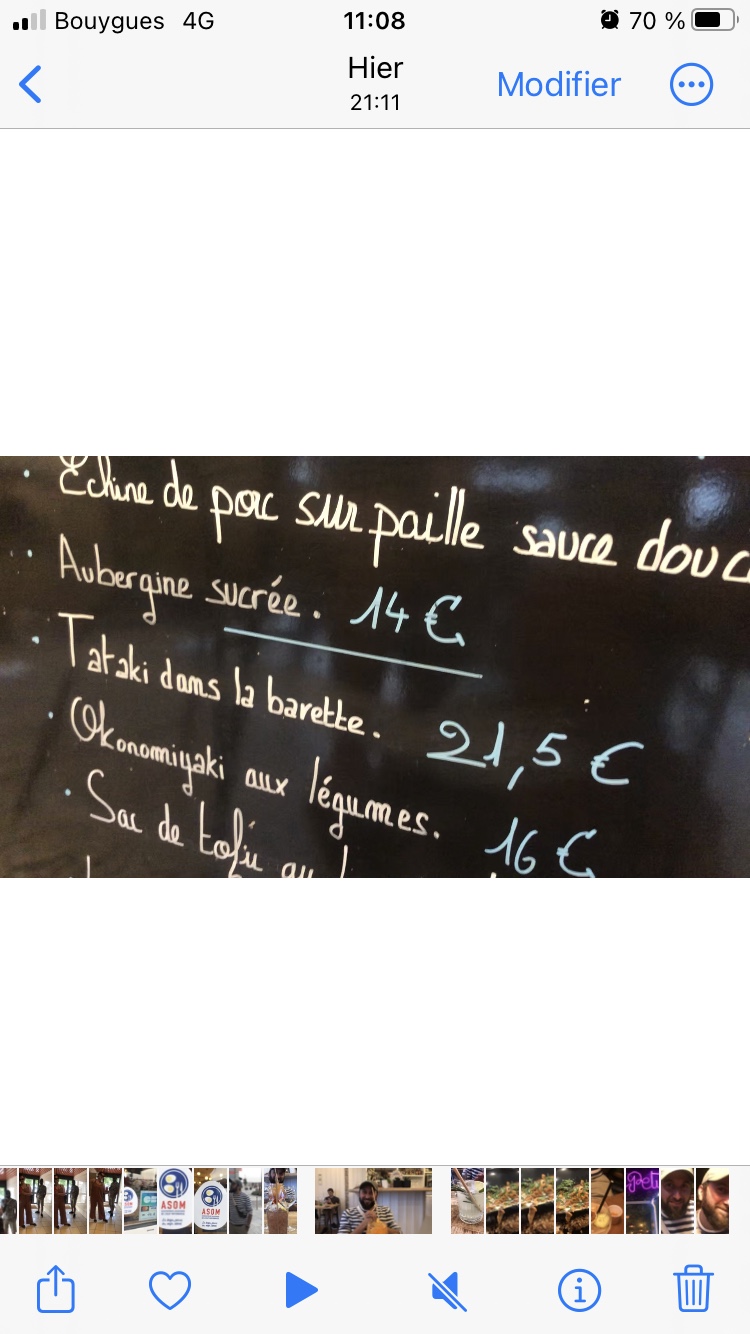 Bouygues 4G 11:08 70 %
Hier
21:11
Modifier
. Echine de porc sur paille sauce douc
. Aubergine sucrée. 14 €
. Tataki dans la barette. 21,5 €
. Okonomiyaki aux légumes. 16 €
. Sac de tofu au
ASOM
ASOM